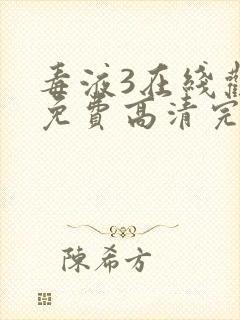 毒液3在线
免费高清完
陳希方